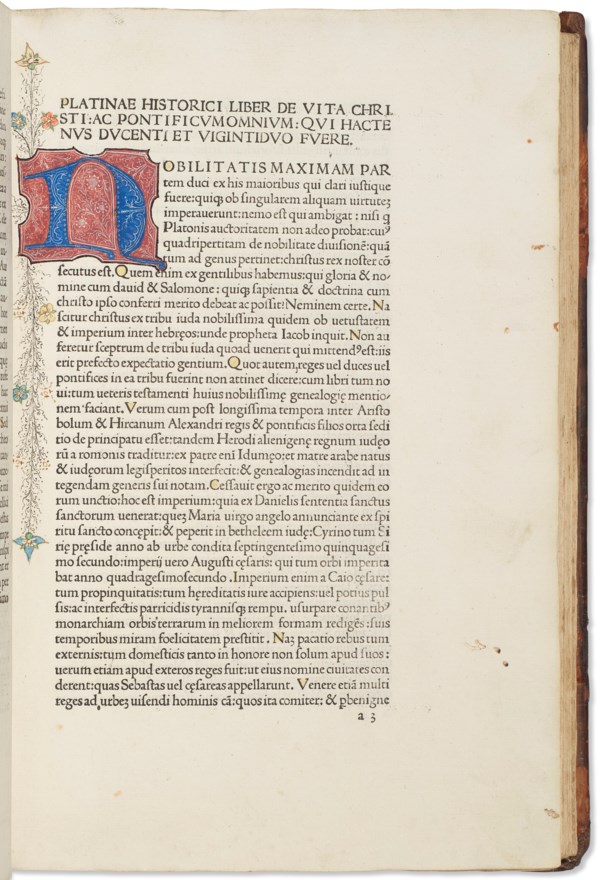 PLATINAE HISTORICI LIBER DE VITA CHRI
STI: AC PONTIFICVM OMNIVM: QVI HACTE
NVS DVCENTI ET VIGINTIDVO FVERE.
NOBILITATIS MAXIMAM PAR
tem duci ex his maioribus qui clari iustique
fuere: quiqꝫ ob singularem aliquam uirtuteꝫ
imperauerunt: nemo est qui ambigat: nisi q
Platonis auctoritatem non adeo probat: cuiꝰ
quadripertitam de nobilitate diuisionē: quā
tum ad genus pertinet: christus rex noster cō
secutus est. Quem enim ex gentilibus habemus: qui gloria & no/
mine cum dauid & Salomone: quiqꝫ sapientia & doctrina cum
christo ipso conferri merito debeat ac possit? Neminem certe. Na
scitur christus ex tribu iuda nobilissima quidem ob uetustatem
& imperium inter hebręos: unde propheta Iacob inquit. Non au
feretur sceptrum de tribu iuda quoad uenerit qui mittendꝰ est: iis
erit prefecto expectatio gentium. Quot autem, reges uel duces uel
pontifices in ea tribu fuerint non attinet dicere: cum libri tum no
ui: tum ueteris testamenti huius nobilissimę genealogię mentio/
nem faciant. Verum cum post longissima tempora inter Aristo
bolum & Hircanum Alexandri regis & pontificis filios orta sedi
tio de principatu esset: tandem Herodi alienigenę regnum iudęo
rū a romonis traditur: ex patre eni Idumęo: et matre arabe natus
& iudęorum legisperitos interfecit: & genealogias incendit ad in
tegendam generis sui notam. Cessauit ergo ac merito quidem eo
rum unctio: hoc est imperium: quia ex Danielis sententia sanctus
sanctorum uenerat: queꝫ Maria uirgo angelo annunciante ex spi
ritu sancto concępit: & peperit in betheleem iudę: Cyrino tum Si
rię pręside anno ab urbe condita septingentesimo quinquagesi
mo secundo: imperij uero Augusti cęsaris: qui tum orbi imperita
bat anno quadragesimosecundo. Imperium enim a Caio cęsare:
tum propinquitatis: tum hęreditatis iure accipiens: uel potius pul
sis: ac interfectis parricidis tyrannisqꝫ rempu. usurpare conantibꝰ
monarchiam orbis terrarum in meliorem formam redigēs: suis
temporibus miram foelicitatem prestitit. Naꝫ pacatio rebus tum
externis: tum domesticis tanto in honore non solum apud suos:
uerum etiam apud exteros reges fuit: ut eius nomine ciuitates con
derent: quas Sebastas uel cęsareas appellarunt. Venere etiā multi
reges ad urbeꝫ uisendi hominis cā: quos ita comiter: & ꝑbenigne
a 3